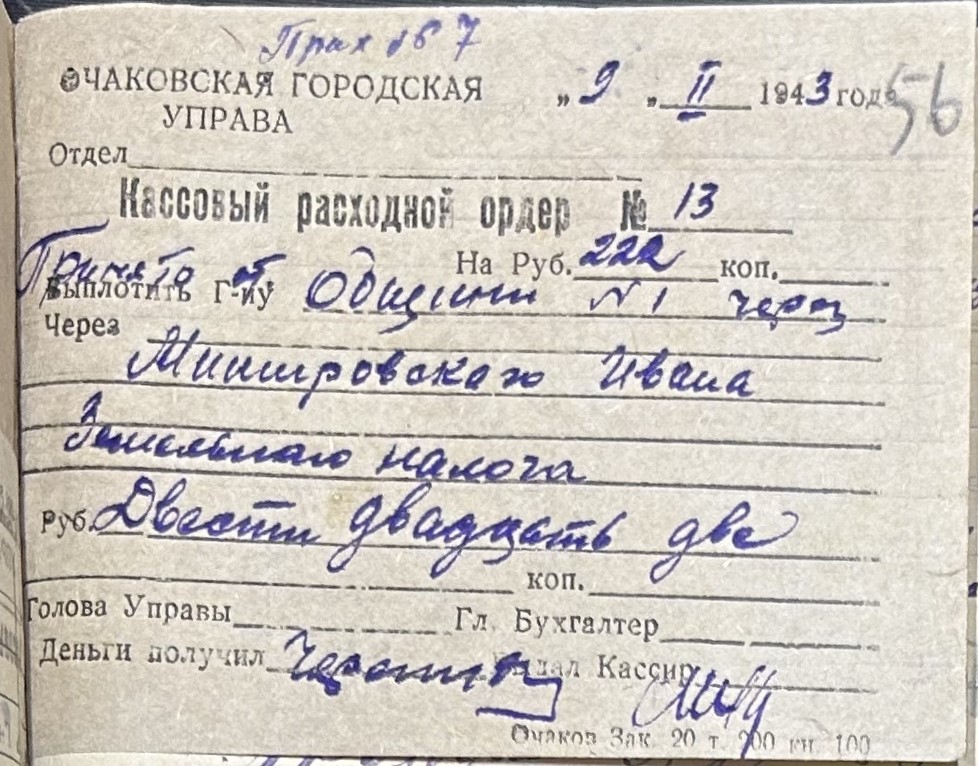 Прих об 7
ОЧАКОВСКАЯ ГОРОДСКАЯ
УПРАВА
„ 9 „ II 1943 года
56
Отдел
Кассовый расходной ордер № 13
На Руб. 222 коп.
Принято от
Выплотить Г-ну Общины N 1 через
Через
Ивана
Земельнаго налога
Руб. Двести двадцать две
коп.
Голова Управы Гл. Бухгалтер
Деньги получил Выдал Кассир
Очаков Зак. 20 т. 200 кн. 100